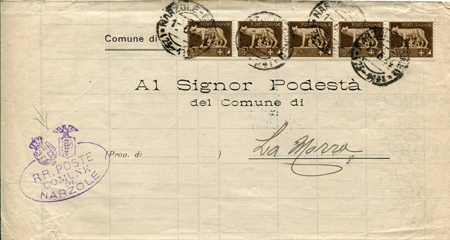 Comune di
POSTE ITALIANE POSTE ITALIANE POSTE ITALIANE POSTE ITALIANE POSTE ITALIANE
NARZOLE
Al Signor Podestà
del Comune di
(Prov. di )
La Morra
RR. POSTE
COMUNE
DI
NARZOLE